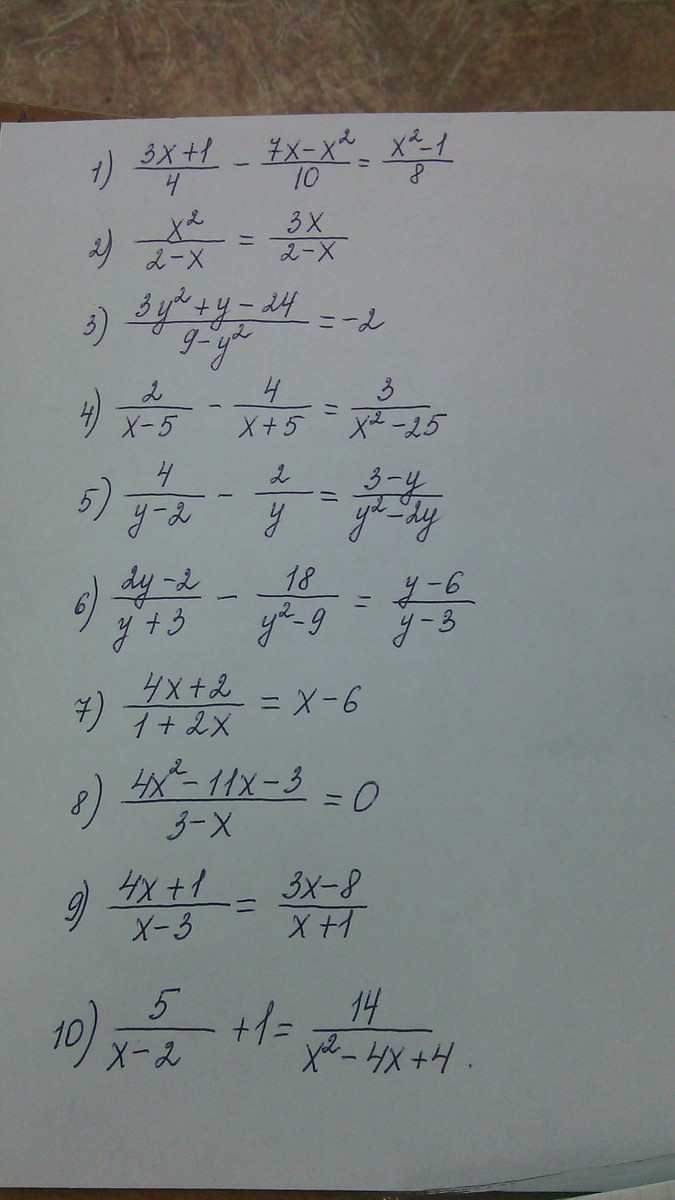 1) (3x+1)/4 - (7x-x²)/10 = (x²-1)/8
2) x²/(2-x) = 3x/(2-x)
3) (3y²+y-24)/(9-y²) = -2
4) 2/(x-5) - 4/(x+5) = 3/(x²-25)
5) 4/(y-2) - 2/y = (3-y)/(y²-2y)
6) (2y-2)/(y+3) - 18/(y²-9) = (y-6)/(y-3)
7) (4x+2)/(1+2x) = x-6
8) (4x²-11x-3)/(3-x) = 0
9) (4x+1)/(x-3) = (3x-8)/(x+1)
10) 5/(x-2) +1 = 14/(x²-4x+4).